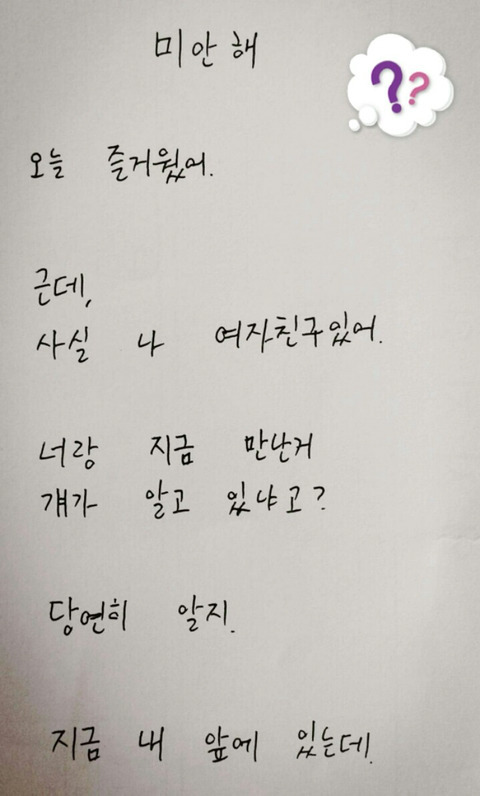 미안해
??
오늘 즐거웠어.
근데,
사실 나 여자친구있어.
너랑 지금 만난거
걔가 알고 있냐고?
당연히 알지.
지금 내 앞에 있는데.